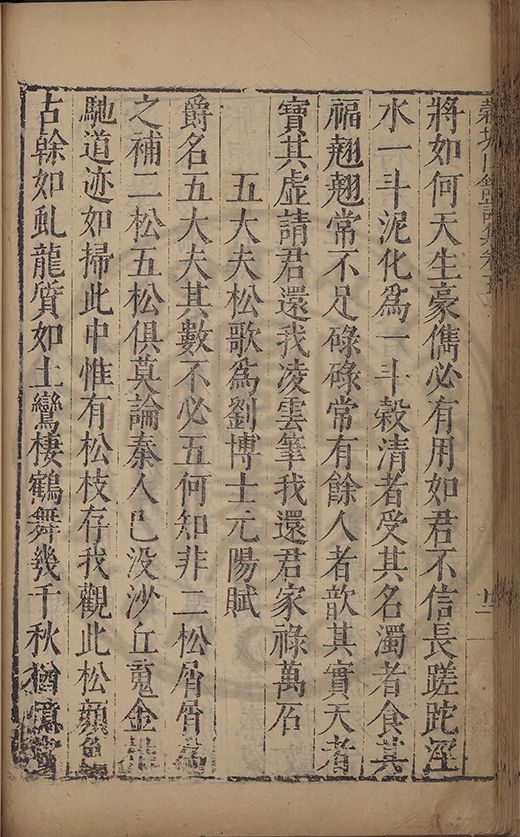 穀城山館詩集卷五
將如何天生豪儁必有用如君不信長蹉跎涇
水一斗泥化爲一斗穀清者受其名濁者食其
福翹翹常不足碌碌常有餘人者歆其實天者
寶其虛請君還我凌雲筆我還君家祿萬石
五大夫松歌爲劉博士元陽賦
爵名五大夫其數不必五何知非二松屑屑爲
之補二松五松俱莫論秦人已没沙丘䰟金
馳道迹如掃此中惟有松枝存我觀此松顏色
古幹如虬龍質如土鸞棲鶴舞幾千秋猶